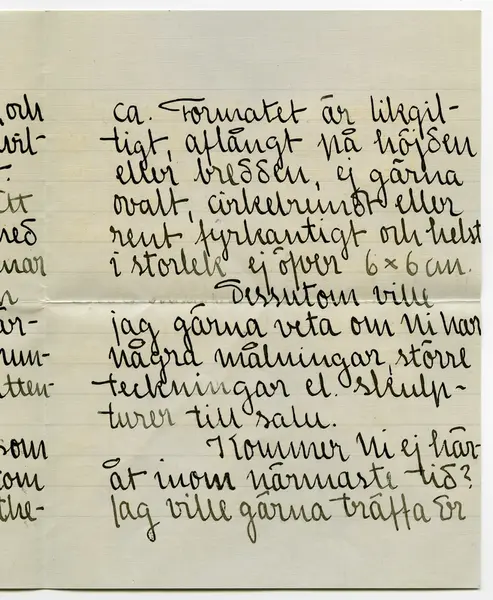 och
vil-
Ett
med
nar
är-
run-
tten-
som
tom
the-
ca. Formatet är likgil-
tigt, aflångt på höjden
eller bredden, ej gärna
ovalt, cirkelrundt eller
rent fyrkantigt och helst
i storlek ej öfver 6×6 cm.
Dessutom ville
jag gärna veta om Ni har
några målningar, större
teckningar el. skulp-
turer till salu.
Kommer Ni ej här-
åt inom närmaste tid?
Jag ville gärna träffa Er